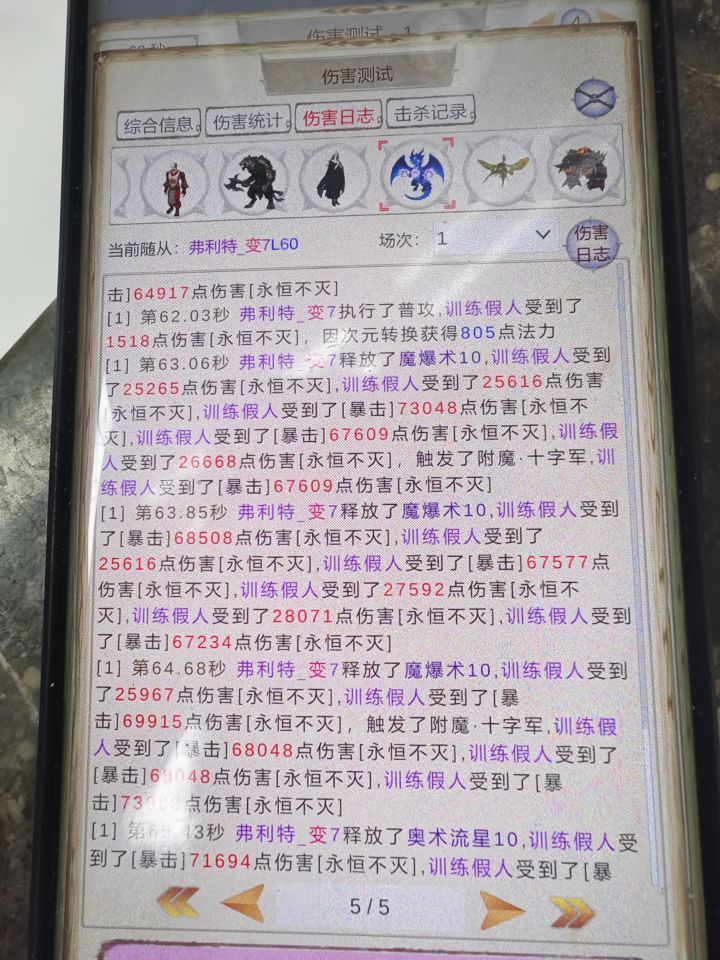 伤害测试 - 1
4
60 秒
伤害测试
综合信息 伤害统计 伤害日志 击杀记录
当前随从: 弗利特_变7L60 场次: 1 伤害
日志
击]64917点伤害[永恒不灭]
[1] 第62.03秒 弗利特_变7执行了普攻,训练假人受到了
1518点伤害[永恒不灭]，因次元转换获得805点法力
[1] 第63.06秒 弗利特_变7释放了魔爆术10,训练假人受到
了25265点伤害[永恒不灭],训练假人受到了25616点伤害
[永恒不灭],训练假人受到了[暴击]73048点伤害[永恒不
灭],训练假人受到了[暴击]67609点伤害[永恒不灭],训练假
人受到了26668点伤害[永恒不灭]，触发了附魔·十字军,训
练假人受到了[暴击]67609点伤害[永恒不灭]
[1] 第63.85秒 弗利特_变7释放了魔爆术10,训练假人受到
了[暴击]68508点伤害[永恒不灭],训练假人受到了
25616点伤害[永恒不灭],训练假人受到了[暴击]67577点
伤害[永恒不灭],训练假人受到了27592点伤害[永恒不
灭],训练假人受到了28071点伤害[永恒不灭],训练假人受到
了[暴击]67234点伤害[永恒不灭]
[1] 第64.68秒 弗利特_变7释放了魔爆术10,训练假人受到
了25967点伤害[永恒不灭],训练假人受到了[暴
击]69915点伤害[永恒不灭]，触发了附魔·十字军,训练假
人受到了[暴击]68048点伤害[永恒不灭],训练假人受到了
[暴击]68048点伤害[永恒不灭],训练假人受到了[暴
击]点伤害[永恒不灭]
[1] 弗利特_变7释放了奥术流星10,训练假人受
到了[暴击]71694点伤害[永恒不灭],训练假人受到了[暴
5 / 5